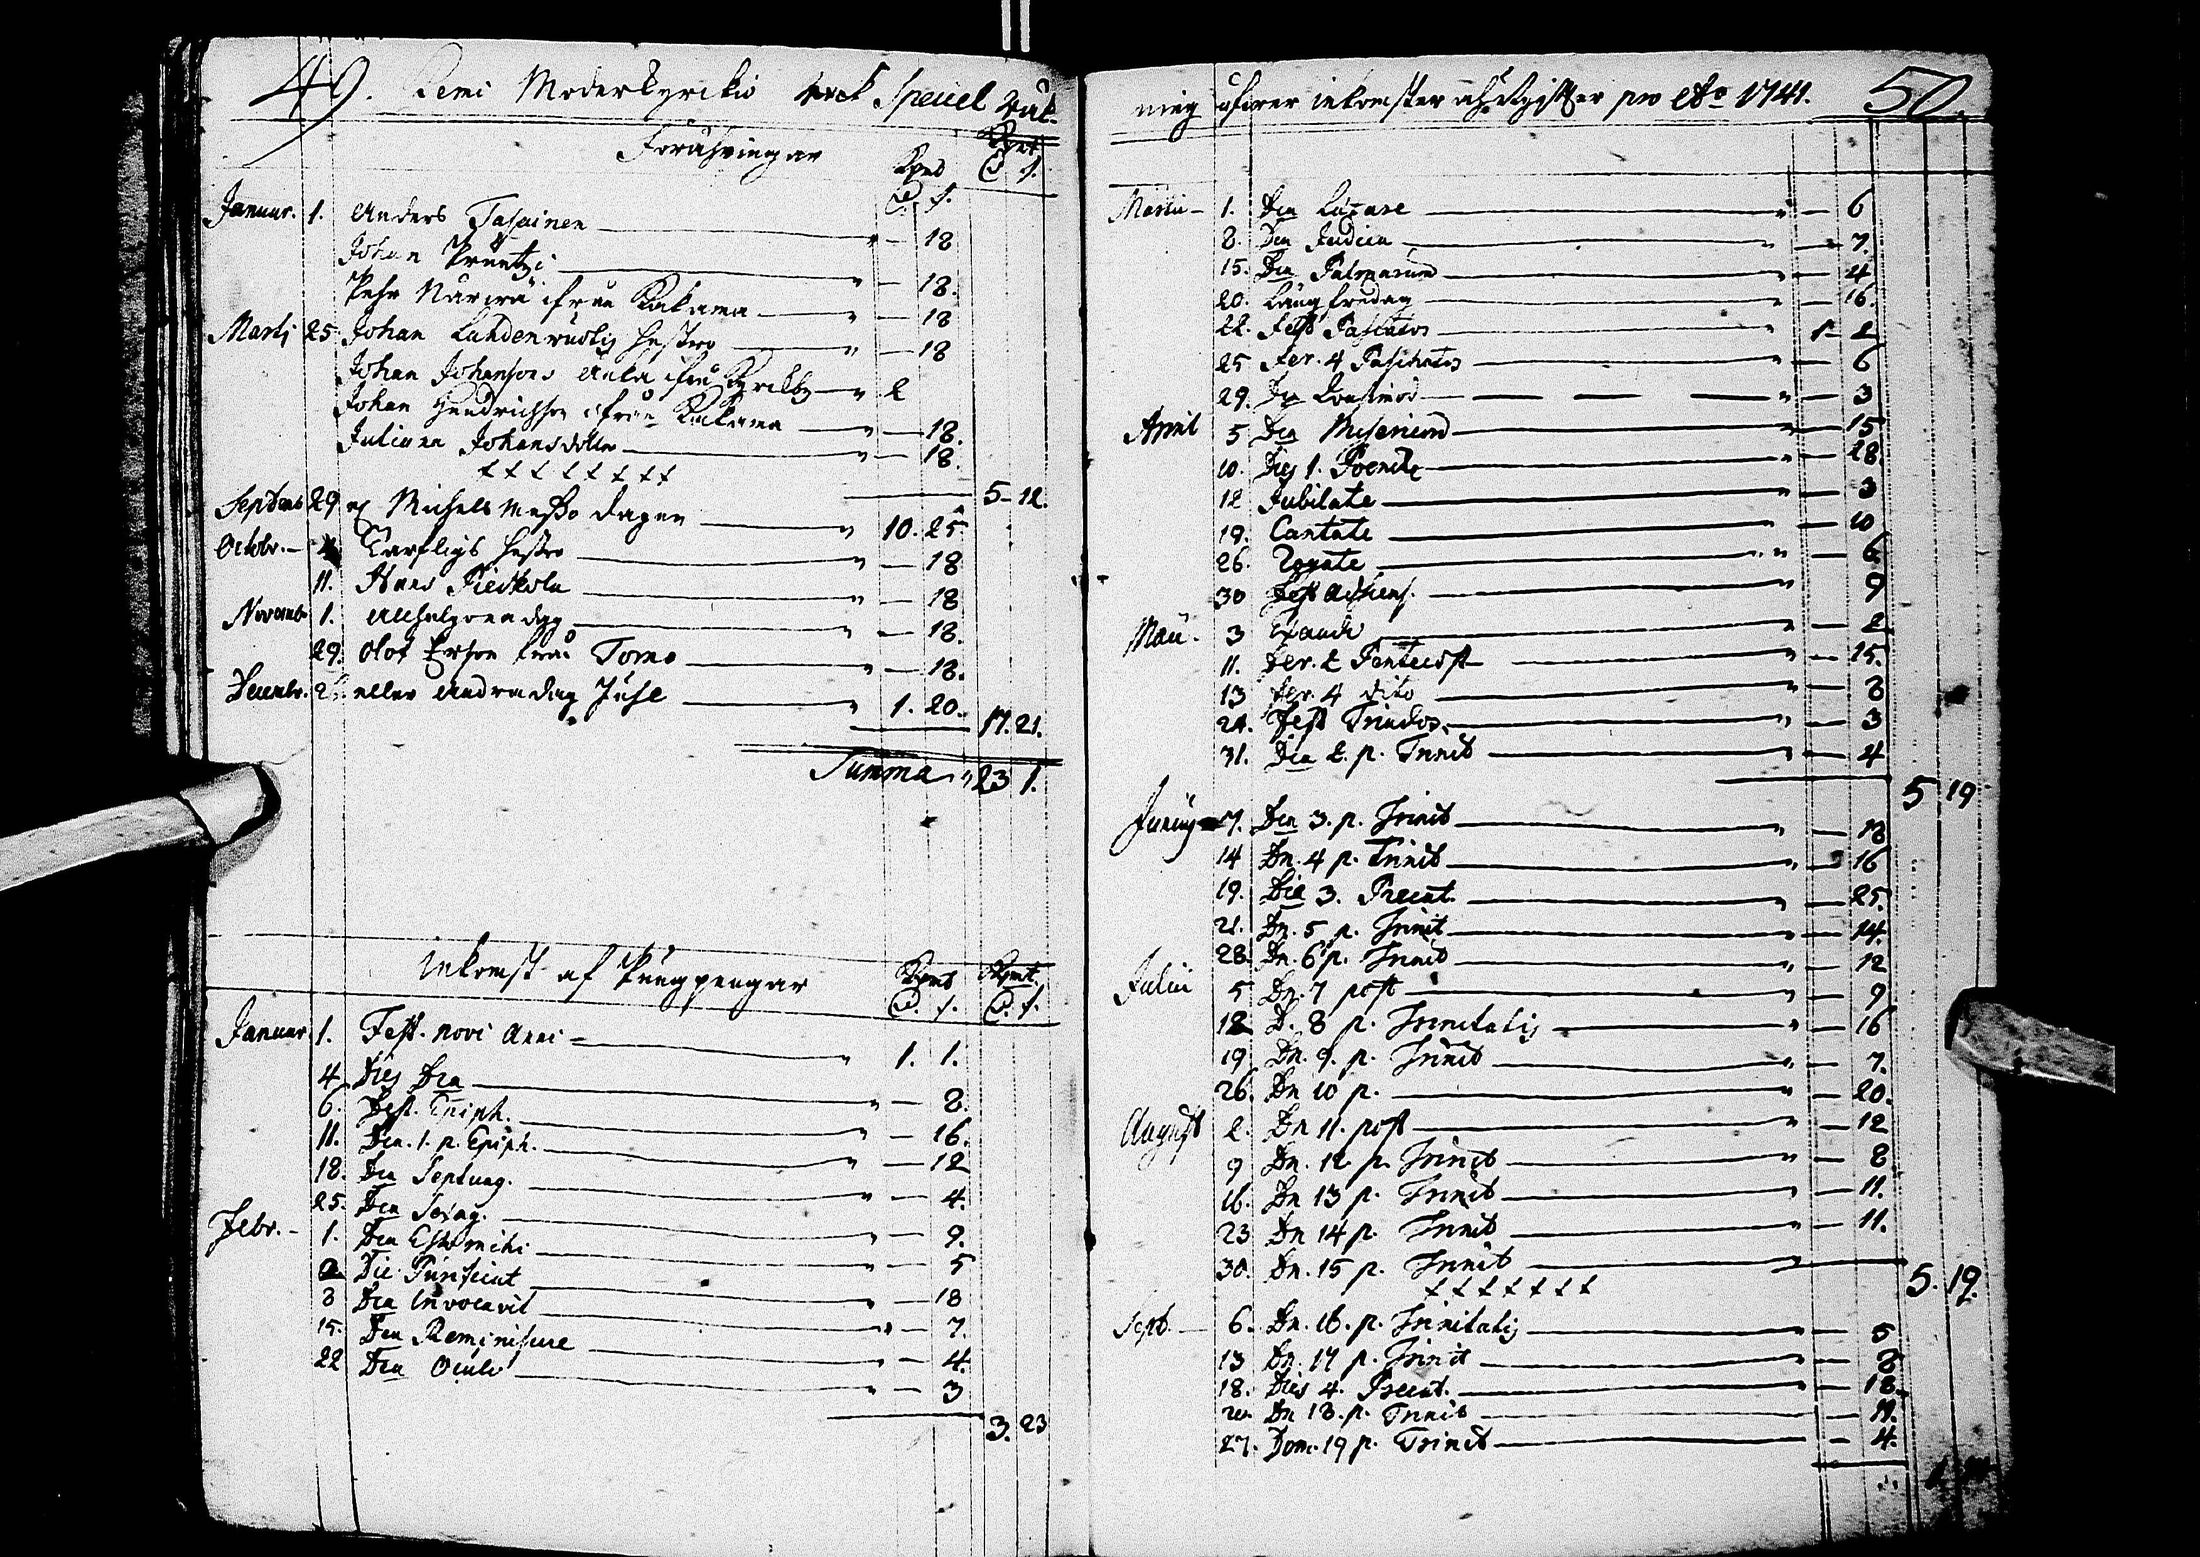 49. Kemi Moderkyrkio Speciel Räk-
Föräringar Kpmt Kpmt
D. s. D. s.
Januar. 1. Anders Tasainen " — 18
Johan " — 18.
Pehr ifrån Kakama " — 18
Martij 25 Johan hustro " — 18
Johan Johansons ifrån Kyrkby " 2
Johan Hendrichson ifrån Kakama " — 18.
Juliana Johansdotter " — 18.
5. 12.
Septemb 29 Michels messo dagen " 10. 25
Octobr. — hustro " — 18
11. Hans " — 18
Novemb. 1. Alhelgona dag " — 18.
29. Olof Erson från Torne " — 18.
Decembr. 2 eller Andra dag Juhl " 1. 20.
17. 21.
Summa " 23 1.
Inkomst af Pung pengar Kpmt Kpmt.
D. s. D. s.
Januar 1. Fest. novi Anni " 1. 1.
4 Dies Dca " — 8.
6. Fest. Epiph. " — 16.
11. Dca. 1. p. Epiph. " — 12
18. Dca Septuag. " — 4.
25. Dca Sexag. " — 9.
Febr. — 1. Dca Esto mihi " — 5
2 Die Purificat " — 18
8 Dca Invocavit " — 7.
15. Dca Reminiscere " — 4.
22 Dca Oculi " — 3
3. 23
ning öfwer inkomster pro Ao 1741. 50.
Martii — 1. Dca Lætare " — 6
8. Dca Judica " — 7.
15. Dca Palmarum " — 4
20. Långfredag " — 16.
22. Fest Paschatos " 1 2
25 Fer. 4 Paschatos " — 6
29. Dca Quasimod " — 3
April 5 Dca Misericord " — 15
10. Dies 1. Poenit " — 28.
12 Jubilate " — 3
19. Cantate " — 10
26. Rogate " — 6
30 Fest Adscens. " 9
Maii. 3 Exaudi " — 2
11. Fer. 2 Pentecost " — 15.
13 Fer. 4 dito " — 8
24. Fest Trinitatis " — 3
31. Dca 2. p. Trinit " — 4
5 19
Junius 7. Dca 3. p. Trinit " — 18
14 Dn. 4 p. Trinit " — 16
19. Dca 3. Precat. " — 25.
21. Dn. 5 p. Trinit " — 14.
28. Dn. 6 p. Trinit " — 12
Julii 5 Dn. 7 post " — 9
12 D. 8 p. Trinitatis " — 16
19 Dn. 9. p. Trinit " — 7.
26. Dn 10 p. " — 20.
August 2. Dn 11. post " — 12
9 Dn. 12 p. Trinit " — 8
16. Dn 13 p. Trinit " — 11.
23 Dn 14 p. Trinit " — 11.
30. Dn. 15 p. Trinit
5. 19.
Sept. — 6. Dn. 16. p. Trinitatis " — 5
13 Dn. 17 p. Trinit " — 8
18. Dies 4. Precat. " — 18.
20. Dn 18. p. Trinit — 11.
27. Dom. 19 p. Trinit — 4.